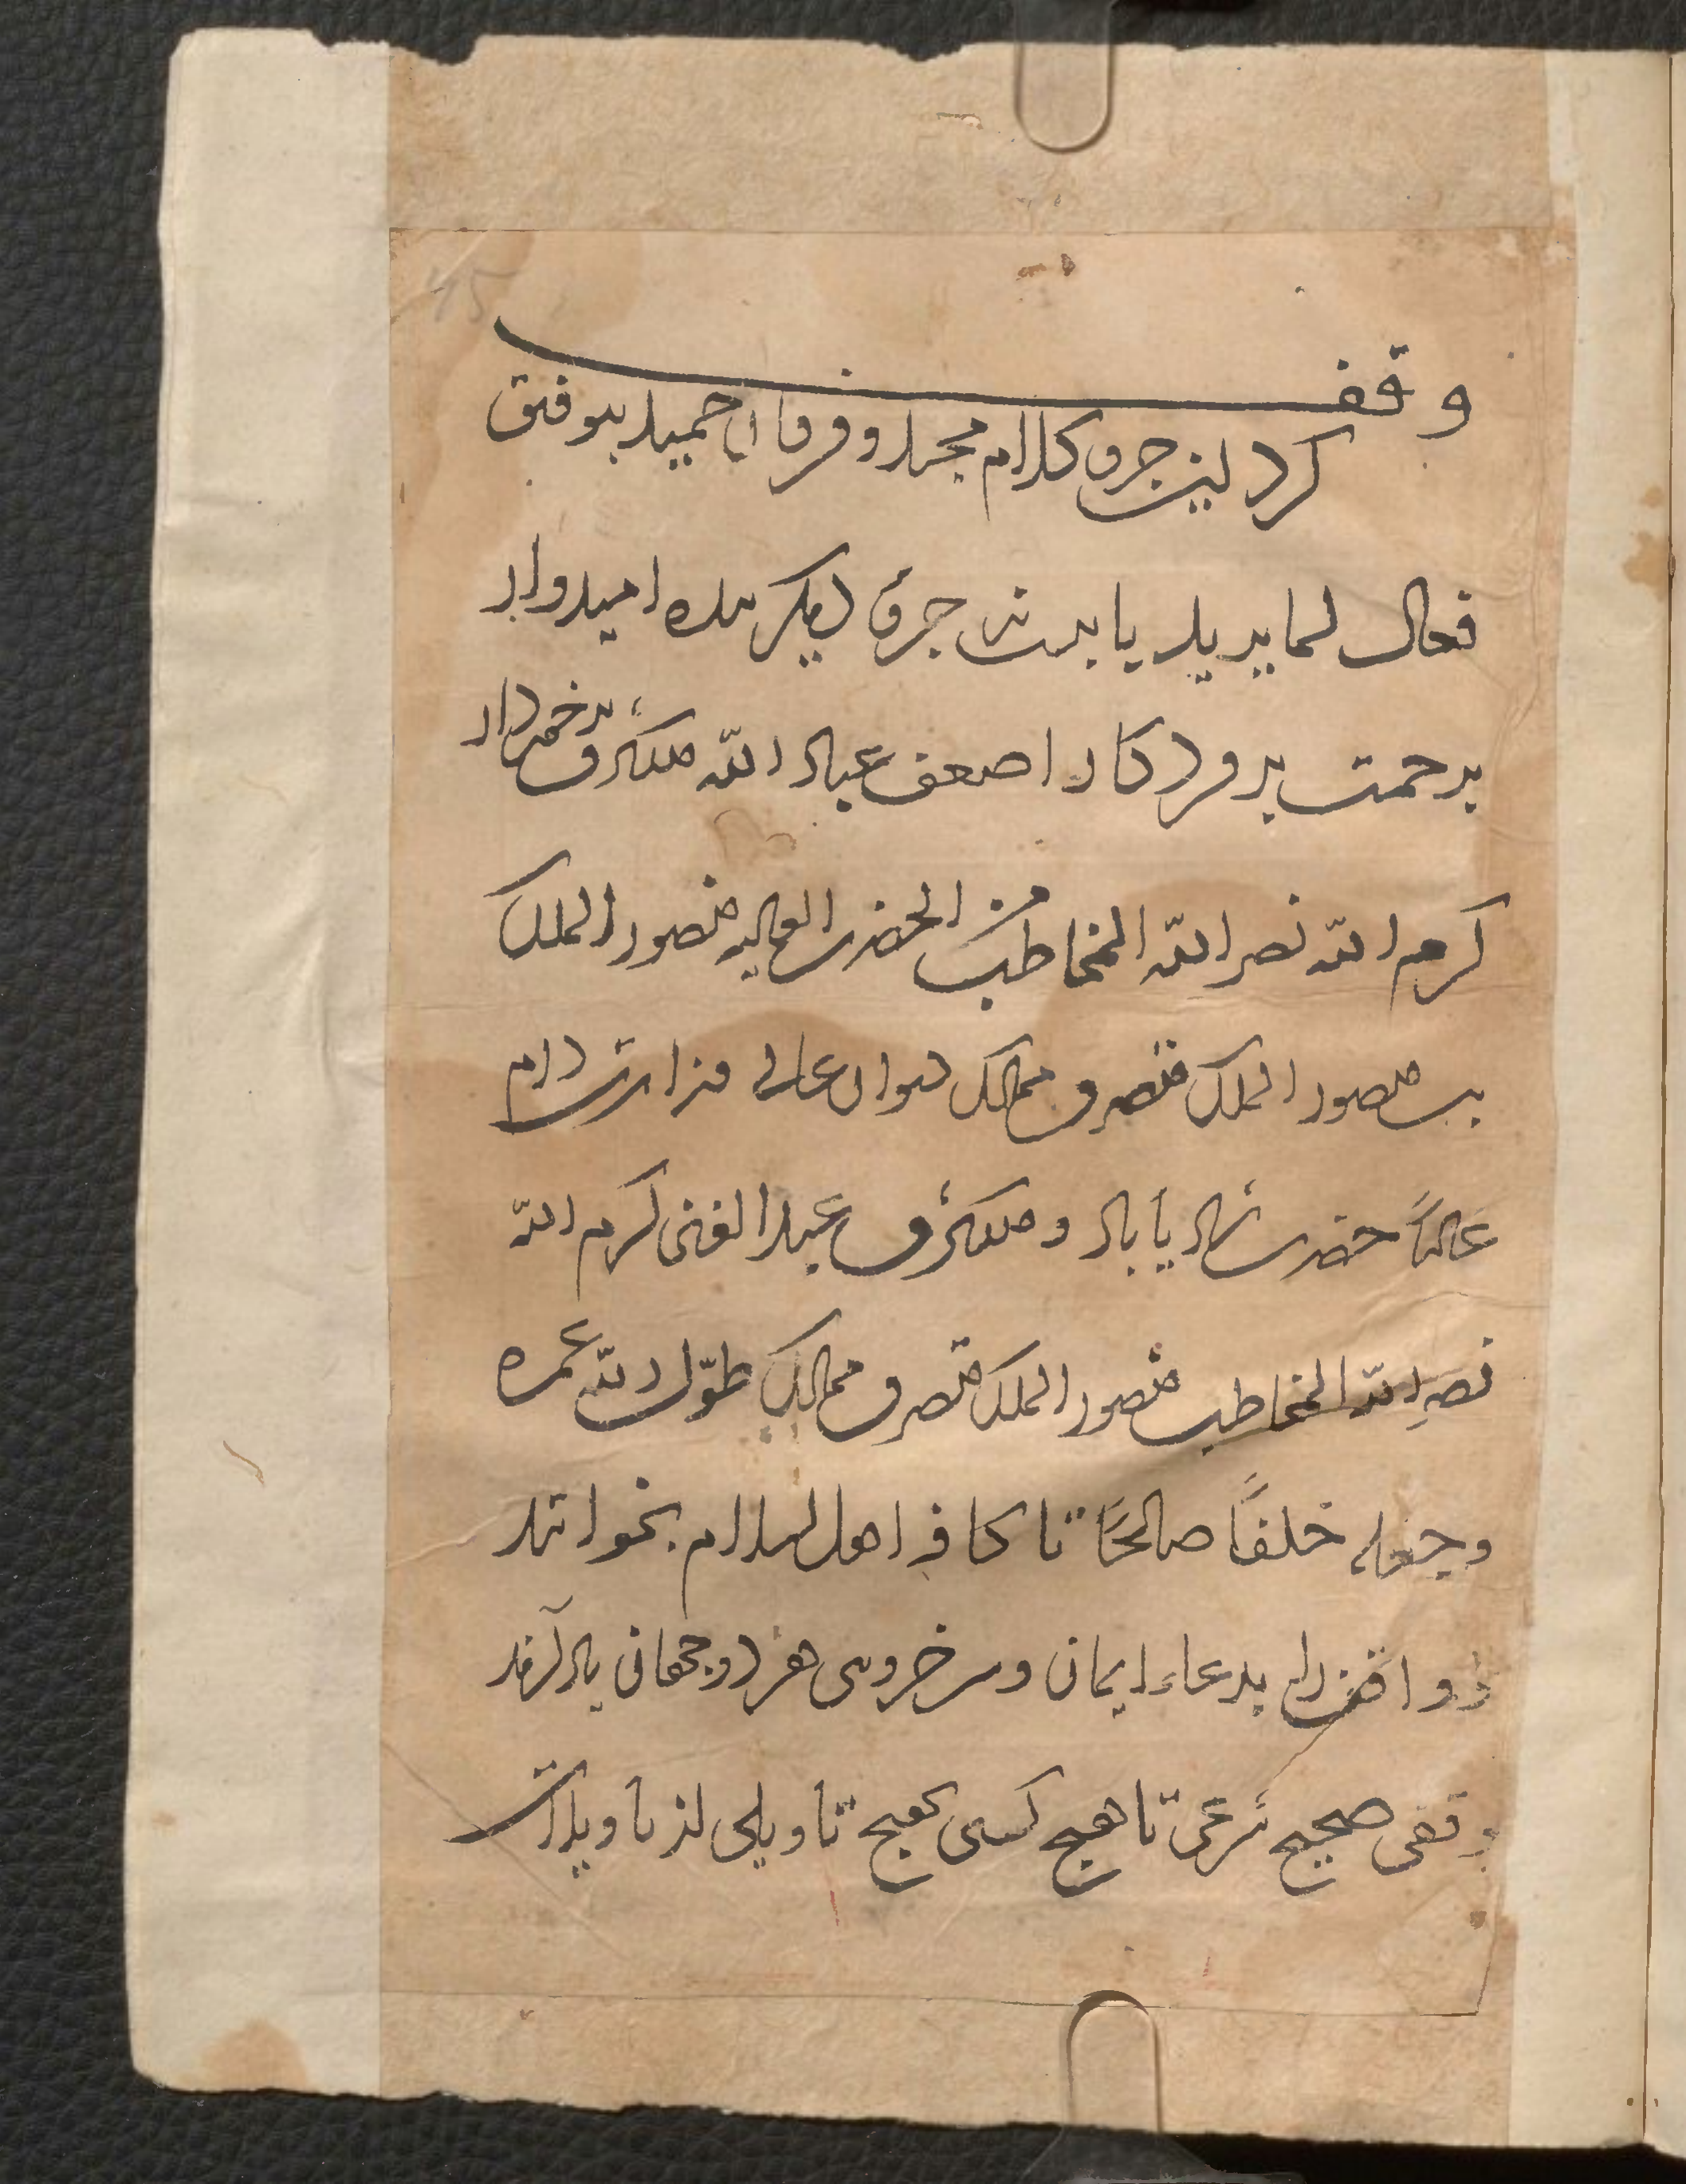 وقف
کرد این جزو کلام مجید و فرقان حمید بتوفیق
فعال لما یرید یا بیست جزو دیکر بنده امیدوار
برحمت پروردکار اصعف عباد الله ملکشرف برخوردار
کرم الله نصر الله المخاطب من الحضرت العالیه منصور الملک
بن منصور الملک متصرف ممالک دیوان عالی وزارت دام
عالیًا حضرت شادیاباد و ملکشرف عبد الغنی کرم الله
نصر الله المخاطب منصور الملک متصرف ممالک طوّل الله عمره
وجعله خلفًا صالحًا تا کافه اهل اسلام بخوانند
و واقف را بدعاء ایمان و سرخروی هر دو جهانی یاد آرند
وقفی صحیح شرعی تا هیچ کسی بهیچ تاویلی از تاویلات